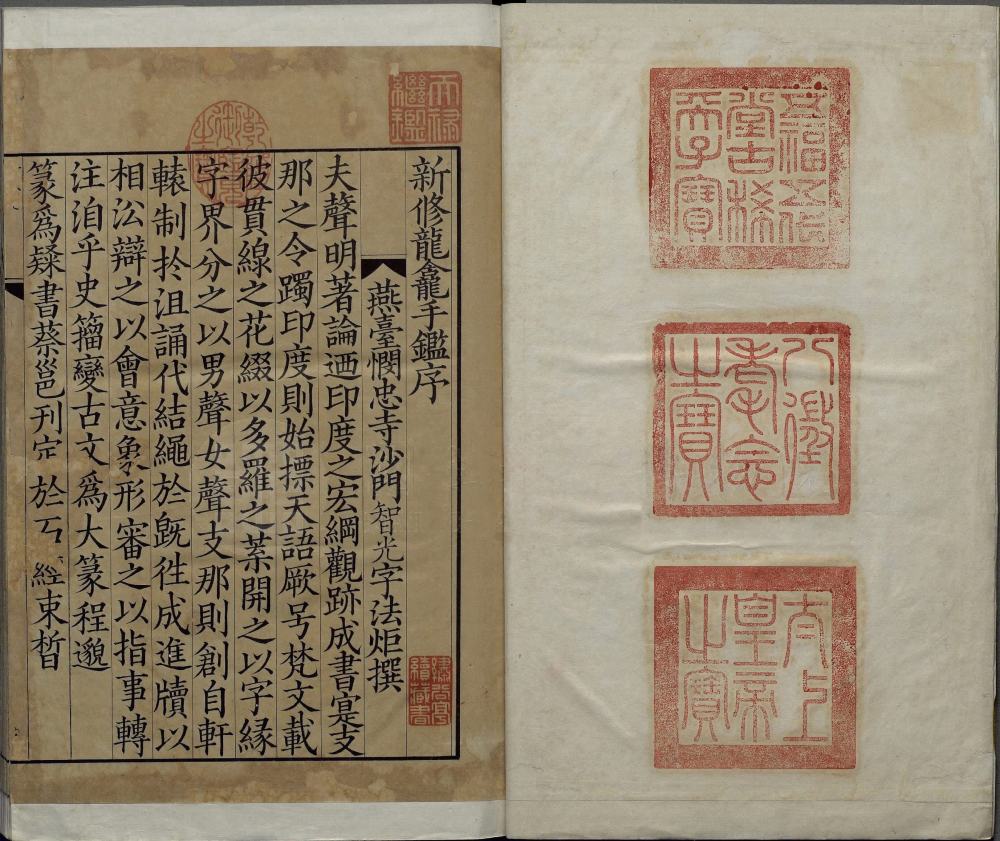 五福五代堂古稀天子寶
八徵耄念之寶
太上皇帝之寶
天祿繼鑑
乾隆御覽之寶
新修龍龕手鑑序
燕臺憫忠寺沙門智光字法炬撰
夫聲明著論迺印度之宏綱觀跡成書寔支
那之令躅印度則始摽天語厥号梵文載
彼貫線之花綴以多羅之葉開之以字緣
字界分之以男聲女聲支那則創自軒
轅制扵沮誦代結繩於旣徃成進牘以
相沿辯之以會意象形審之以指事轉
注洎乎史籒變古文爲大篆程邈
篆爲隸書蔡邕刊定於石經束晳